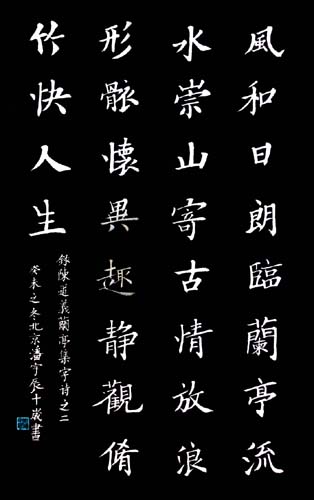 風和日朗臨蘭亭流
水崇山寄古情放浪
形骸懷異趣静觀脩
竹快人生
録陳道義蘭亭集字詩之二
癸未之冬北京潘宇辰十歲書